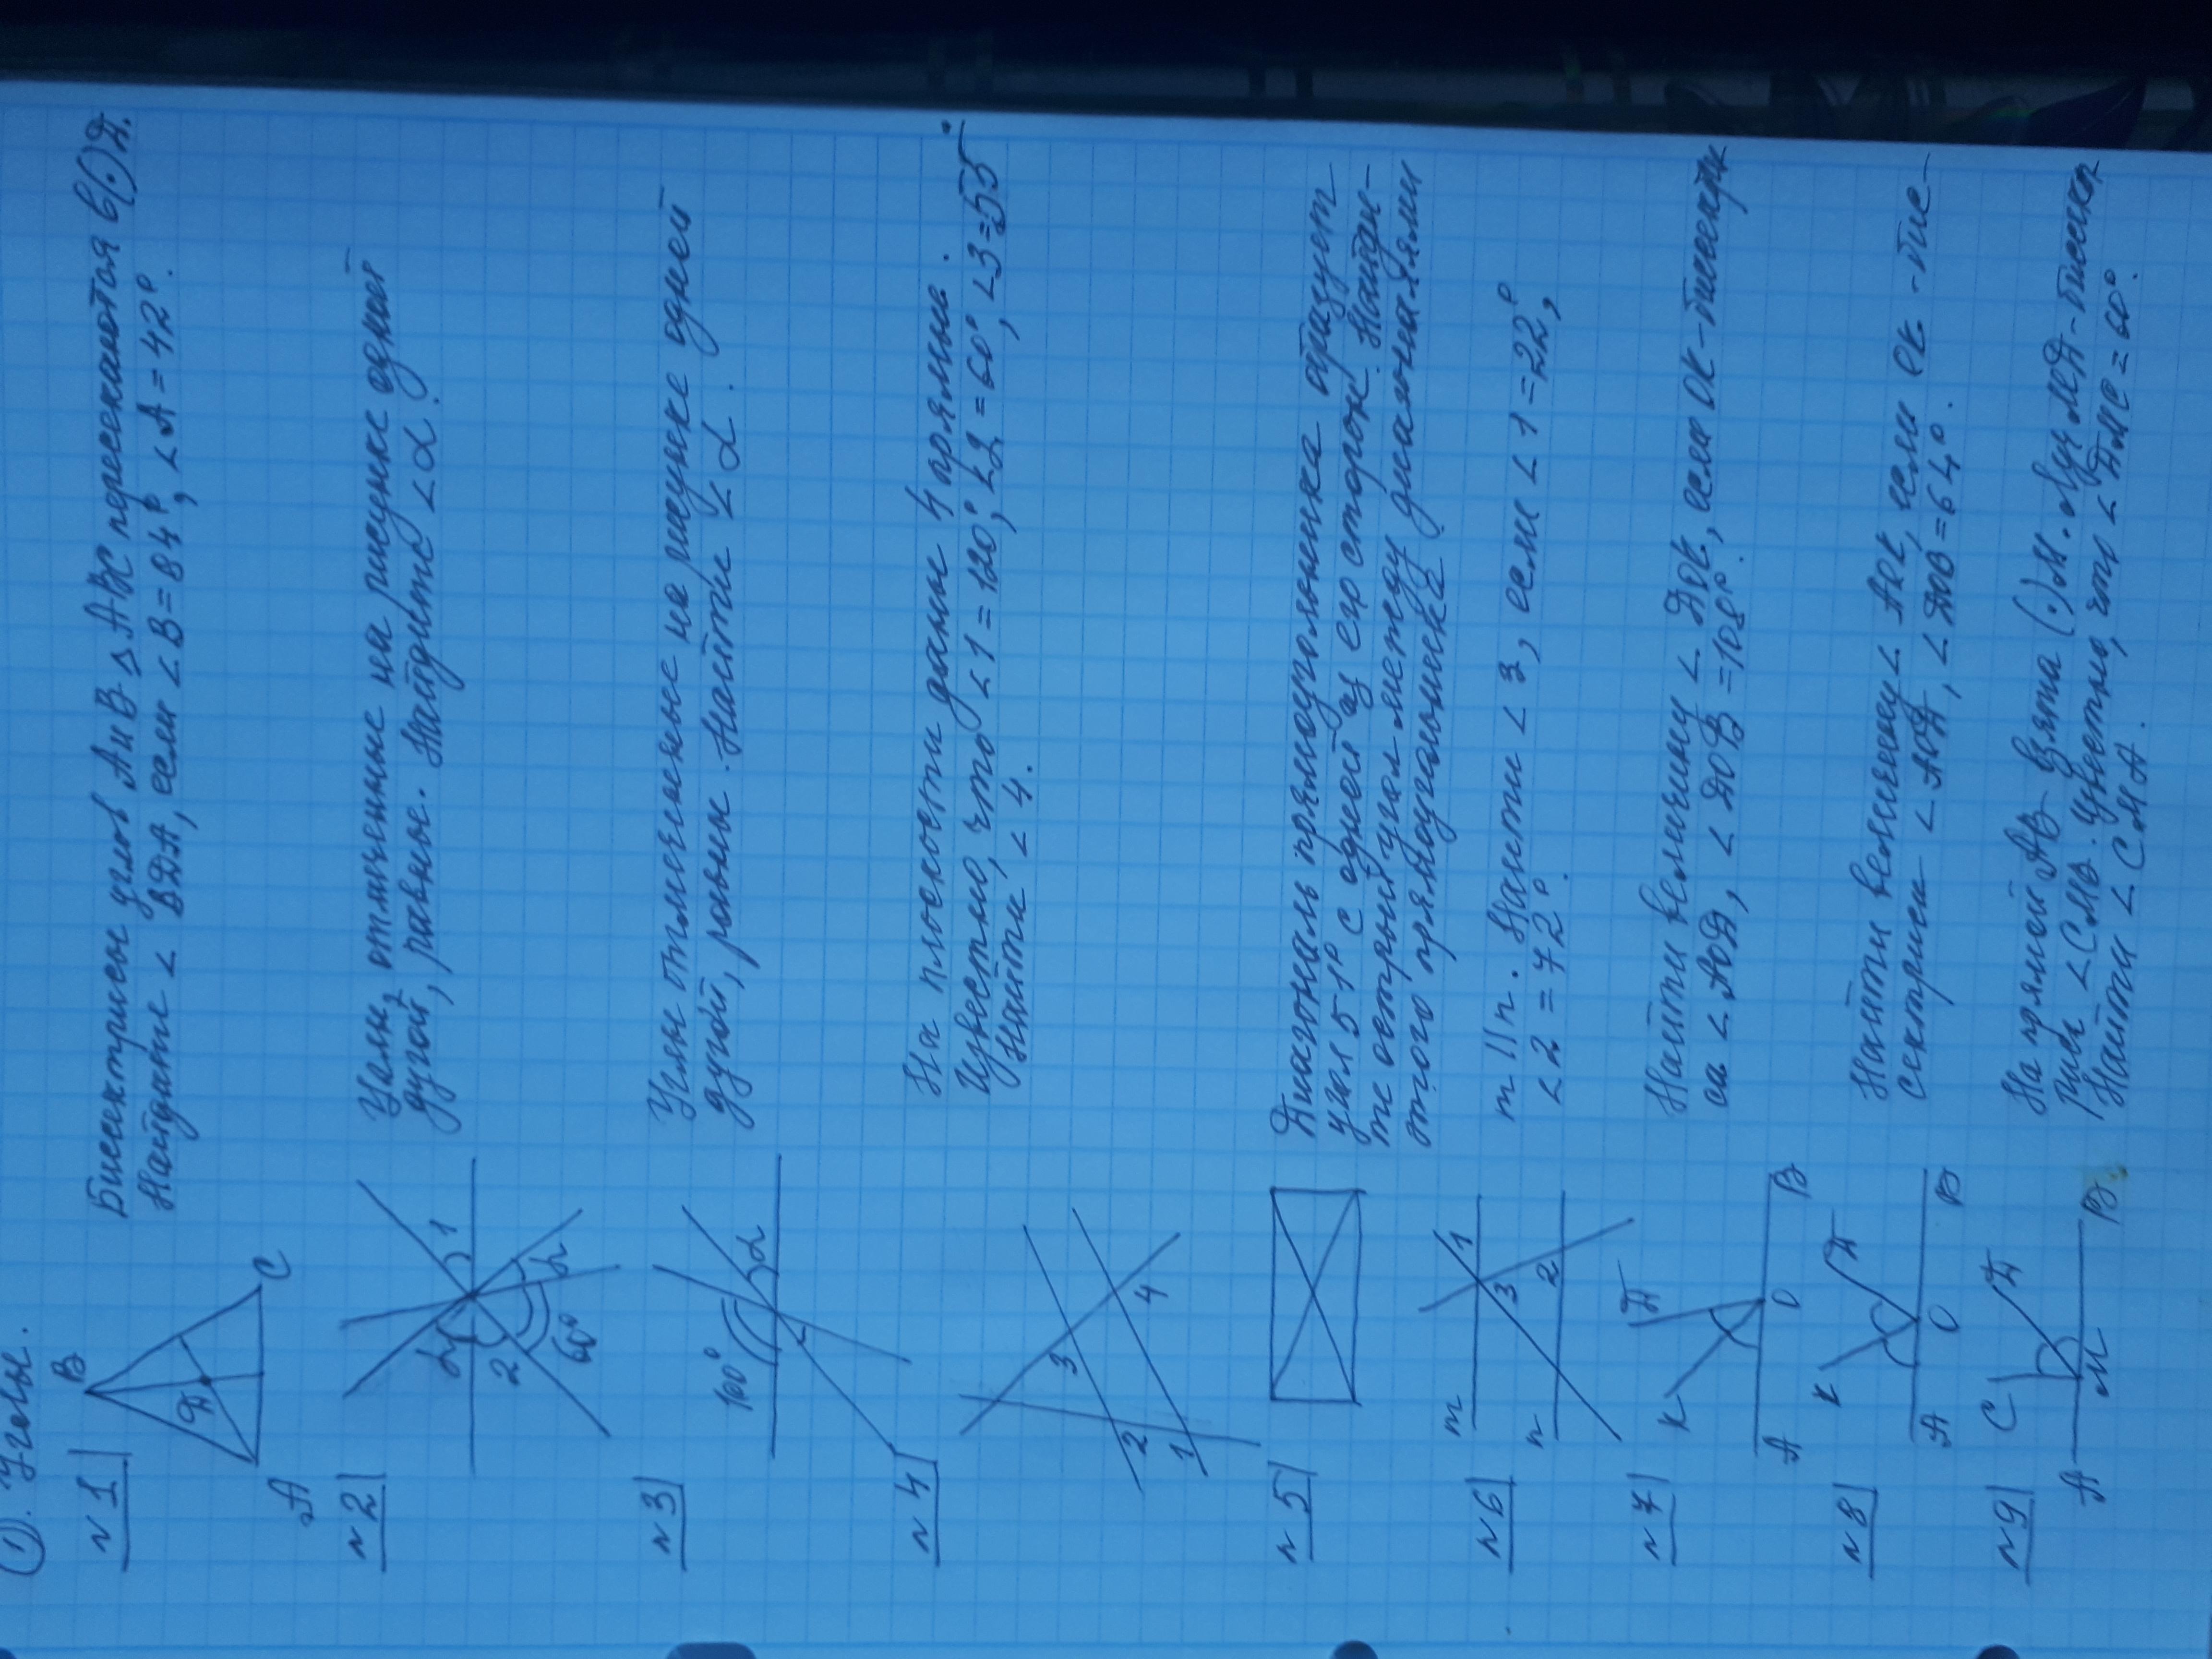 ①. Углы.
N1
Биссектрисы углов А и В △ АВС пересекаются в (·) Д.
Найдите < ВДА, если <В = 84°, <А = 42°.
В
Д
А
С
N2
Углы, отмеченные на рисунке одной
дугой, равные. Найдите <α.
1
α
2
α
60°
N3
Углы отмеченные на рисунке одней
дугой, равны. Найти <α.
100°
α
N4
На плоскости даны 4 прямые.
Известно, что <1 = 120°, <2 = 60°, <3 = 55°
Найти <4.
3
4
2
1
N5
Диагональ прямоугольника образует
угол 51° с одней из его сторон. Найди-
те острый угол между диагоналями
этого прямоугольника.
N6
m || n. Найти <3, если <1 = 22°,
<2 = 72°.
m
1
3
n
2
N7
Найти величину < ДОК, если ОК - биссектри
са < АОД, < ДОВ = 108°.
Д
К
А
О
В
N8
Найти величину < АОК, если ОК - бис-
сектриса < АОД, < ДОВ = 64°.
К
Д
А
О
В
N9
На прямой АВ взята (·) М. Луч МД - биссект
риса <СМВ. Известно, что < ДМС = 60°.
Найти < СМА.
С
Д
А
М
В